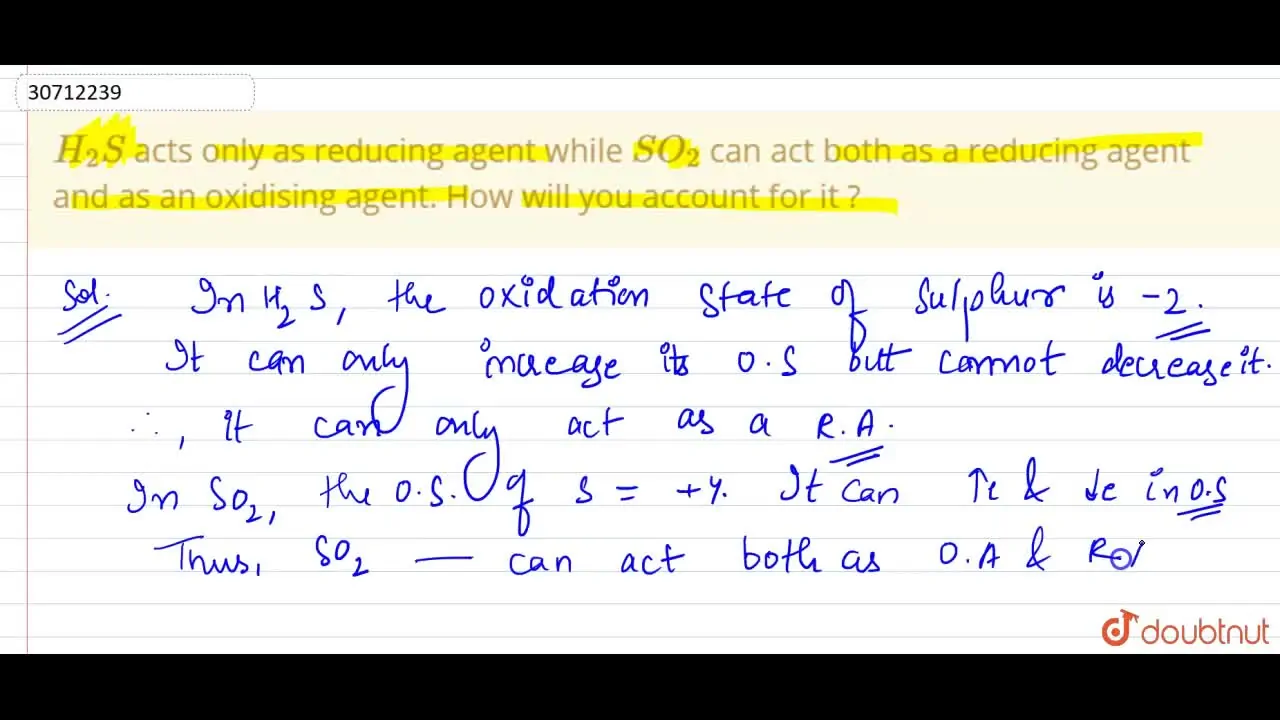 30712239
H₂S acts only as reducing agent while SO₂ can act both as a reducing agent
and as an oxidising agent. How will you account for it ?
Sol. In H₂S, the oxidation state of Sulphur is -2.
It can only increase its O.S but cannot decrease it.
∴, it can only act as a R.A.
In SO₂, the O.S. of S = +4. It can ↑e & ↓e in O.S
Thus, SO₂ — can act both as O.A & R.
doubtnut